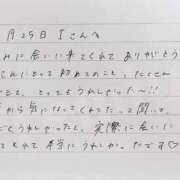 月25日 Iさんへ
れに会いに来てくれて ありがとう
んにとって初めてのこと、たくさん
こと、とってもうれしかった〜!!
から気になってくれてたって聞いて、
ごくうれしかったし、実際に会いに
てくれて本当にうれしかったです♡